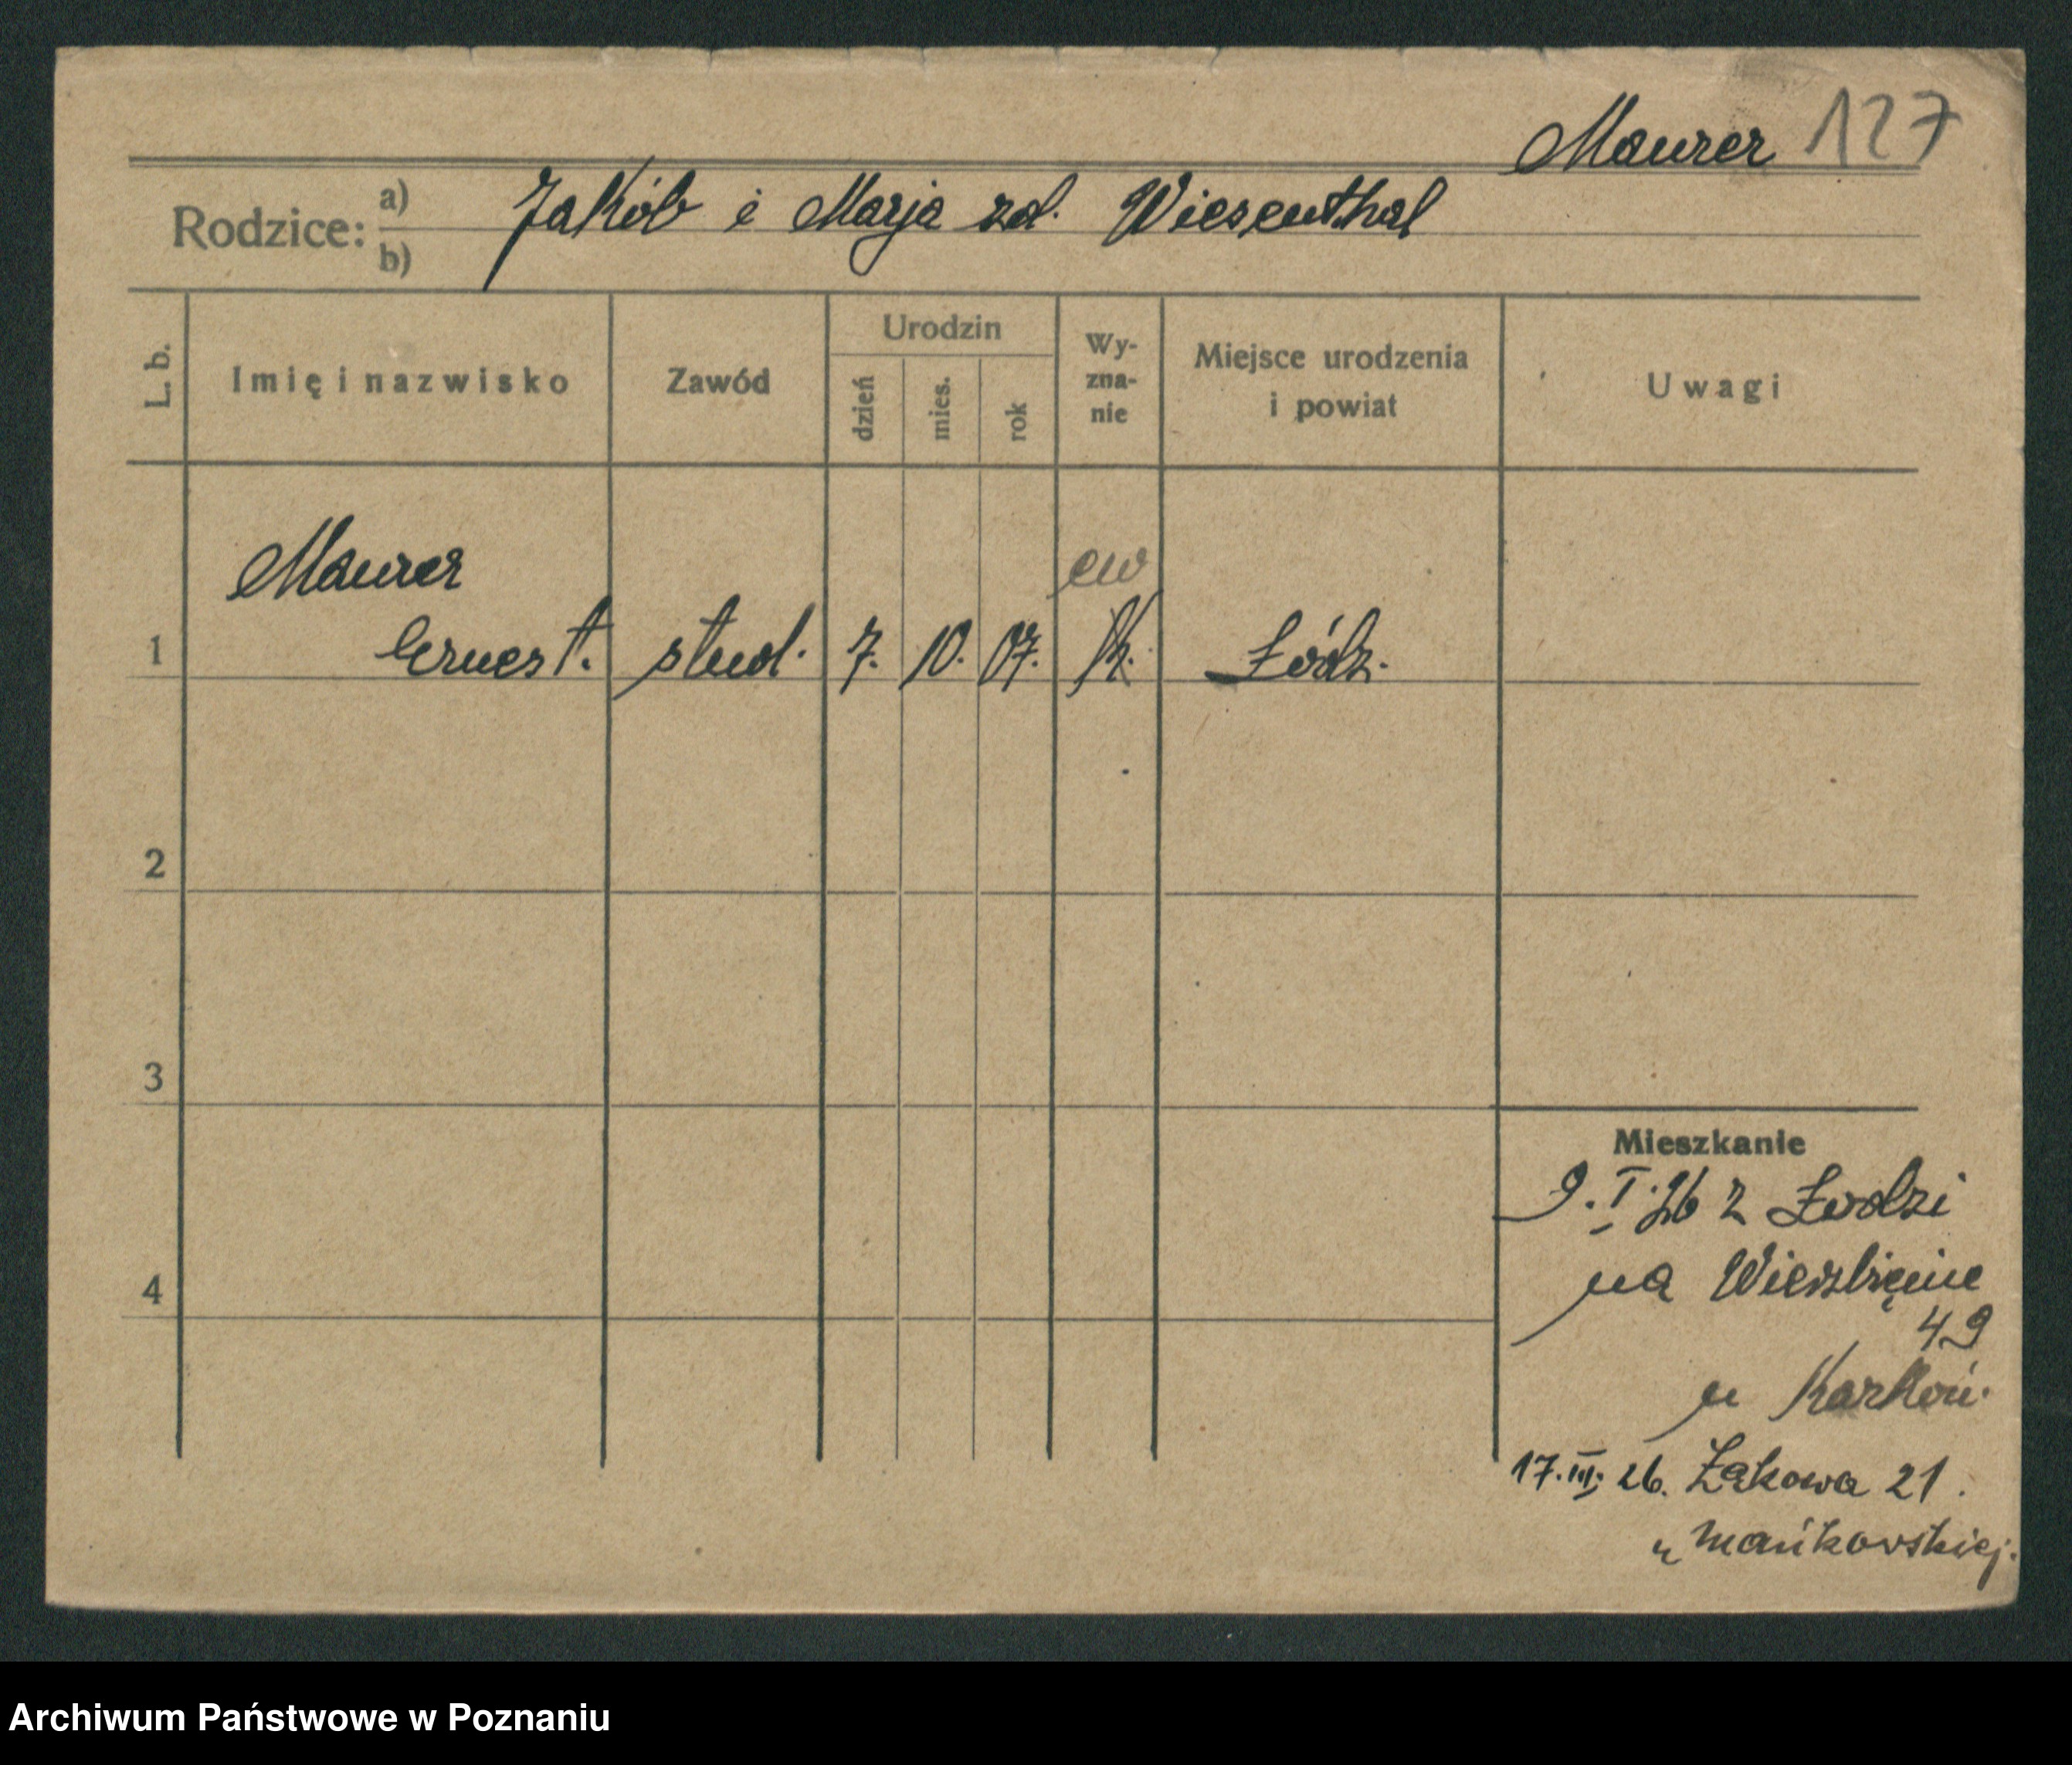 Maurer 127
Rodzice: a) Jakób i Marja zd. Wiesenthal
b)
L. b.
Imię i nazwisko
Zawód
Urodzin
dzień
mies.
rok
Wy-
zna-
nie
Miejsce urodzenia
i powiat
Uwagi
Maurer
ew
1 Ernest. stud. 7. 10. 07. Łódz.
2
3
4
Mieszkanie
9. I. 26 z Łodzi
na Wierzbięcice
49
u
17. III. 26. Żakowa 21.
u Mańkowskiej.
Archiwum Państwowe w Poznaniu